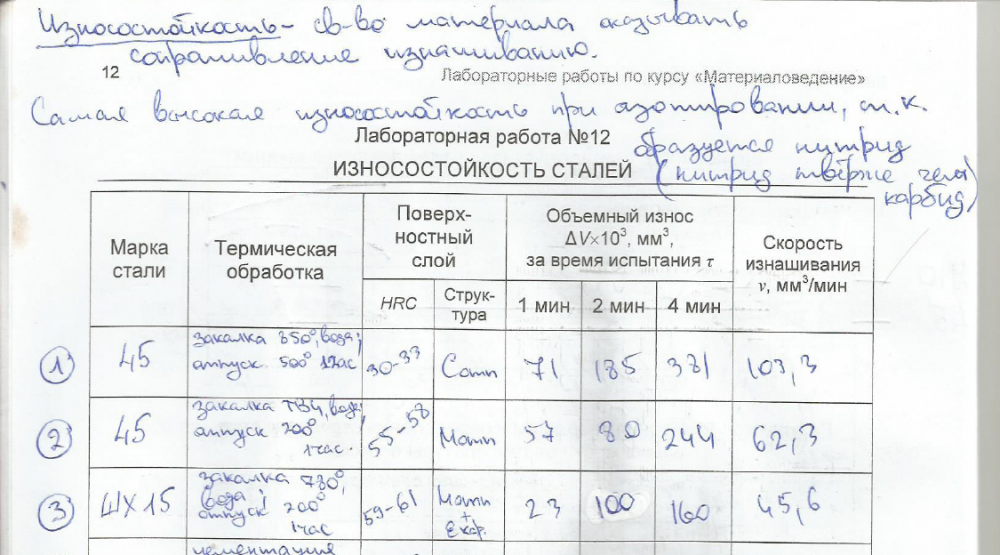 Износостойкость - св-во материала оказывать
сопративление изнашиванию.
12 Лабораторные работы по курсу «Материаловедение»
Самая высокая износостойкость при азотировании, т.к.
Лабораторная работа №12
образуется нитрид
ИЗНОСОСТОЙКОСТЬ СТАЛЕЙ
(нитрид твёрже чем
карбид)
Марка стали
Термическая обработка
Поверх-
ностный
слой
Объемный износ
ΔV×10³, мм³,
за время испытания τ
Скорость
изнашивания
v, мм³/мин
HRC Струк-
тура
1 мин 2 мин 4 мин
1 45 закалка 850°, вода;
отпуск 500° 1час 30-33 Сотп 71 185 381 103,3
2 45 закалка ТВЧ, вода;
отпуск 200°
1час. 55-58 Мотп 57 80 244 62,3
3 ШХ15 закалка 730°,
вода;
отпуск 200°
1час 59-61 Мотп
+
карб. 23 100 160 45,6
цементация